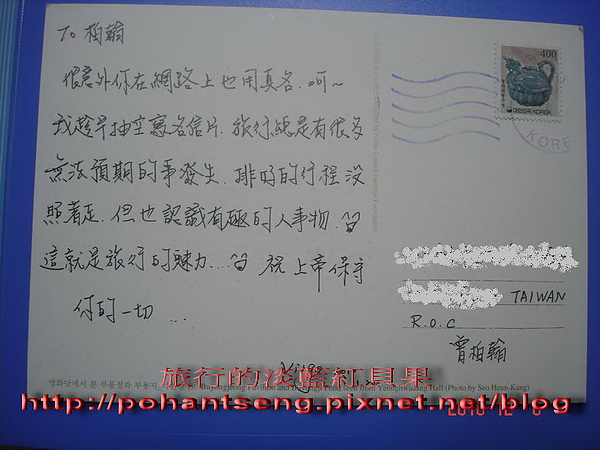 To 柏翰
很意外你在網路上也用真名. 呵~
我趁早抽空寫名信片. 旅行總是有很多
無法預期的事發生. 排好的行程沒
照著走. 但也認識有趣的人事物.
這就是旅行的魅力.... 祝 上帝保守
你的一切 ...
400
KORE
TAIWAN
R.O.C
曾柏翰
영화당에서 본 부용정과 부용지
Pavilion and
Pond seen from Yeonghwadang Hall (Photo by Seo Heun-Kang)
旅行的淡藍紅貝果
http://pohantseng.pixnet.net/blog